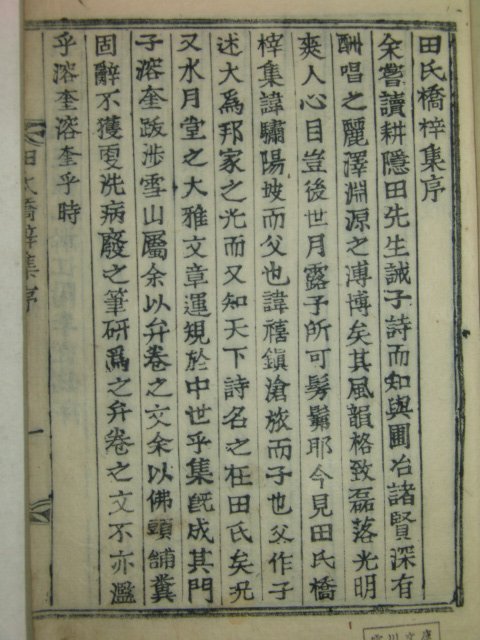 田氏橋梓集序
余嘗讀耕隱田先生誡子詩而知與圃冶諸賢深有
酬唱之麗澤淵源之溥博矣其風韻格致磊落光明
爽人心目豈後世月露子所可髣髴耶今見田氏橋
梓集諱驌陽坡而父也諱禧鎭滄旅而子也父作子
述大爲邦家之光而又知天下詩名之在田氏矣況
又水月堂之大雅文章運規於中世乎集旣成其門
子溶奎跋涉雪山屬余以弁卷之文余以佛頭鋪糞
固辭不獲更洗病廢之筆硏爲之弁卷之文不亦濫
乎溶奎溶奎乎時
田氏橋梓集序
一